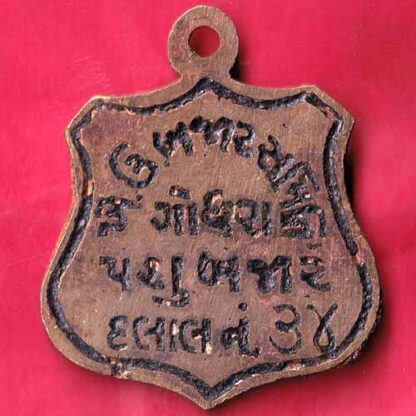 ઉ બજાર સમિતિ
ગોધરા
પશુ બજાર
દલાલ નં. ૩૪